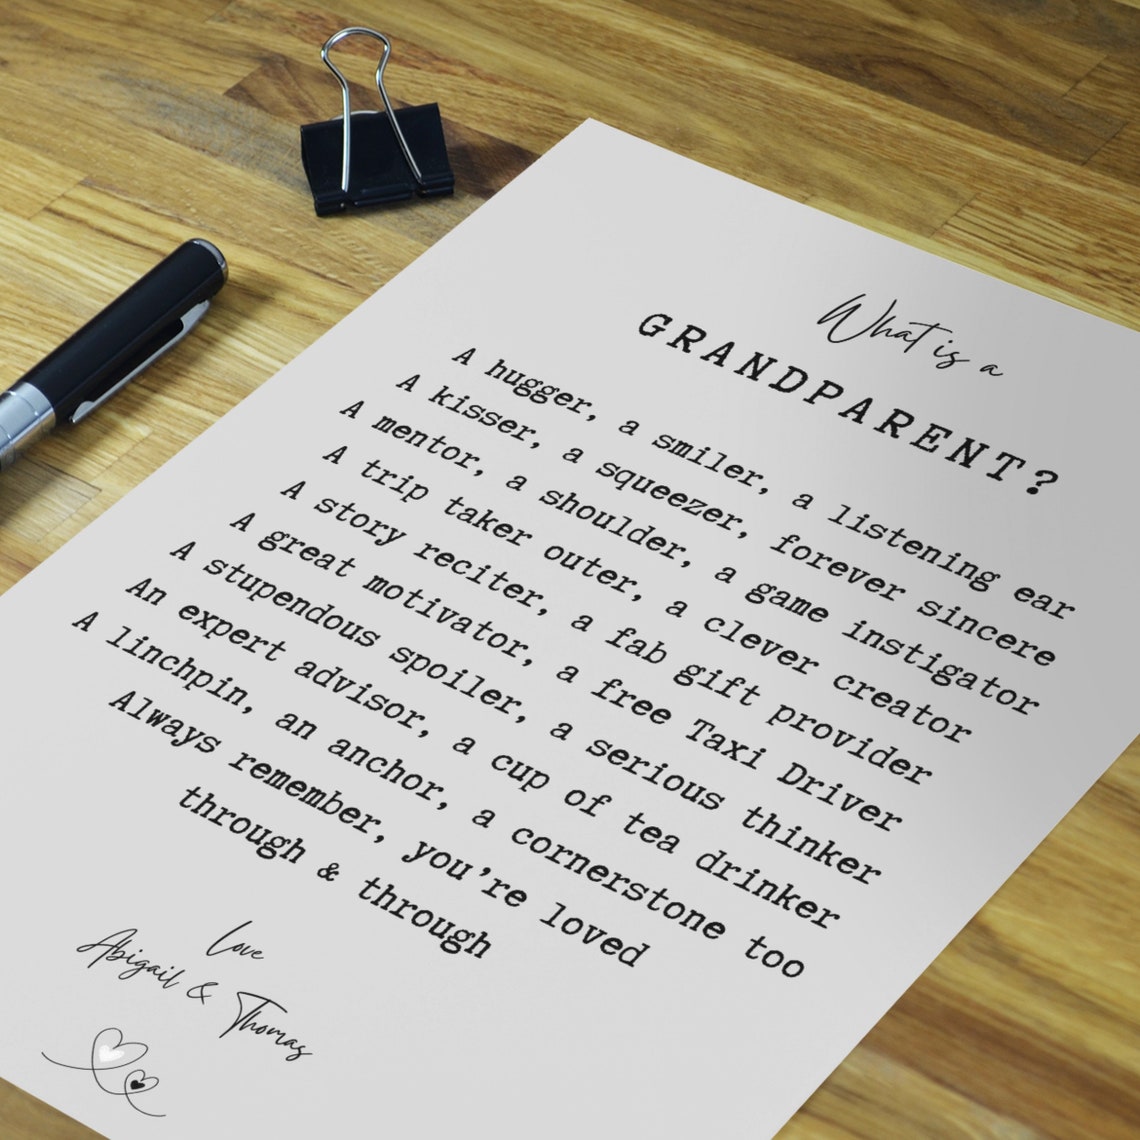 What is a
GRANDPARENT?
A hugger, a smiler, a listening ear
A kisser, a squeezer, forever sincere
A mentor, a shoulder, a game instigator
A trip taker outer, a clever creator
A story reciter, a fab gift provider
A great motivator, a free Taxi Driver
A stupendous spoiler, a serious thinker
An expert advisor, a cup of tea drinker
A linchpin, an anchor, a cornerstone too
Always remember, you're loved
through & through
Love
Abigail & Thomas